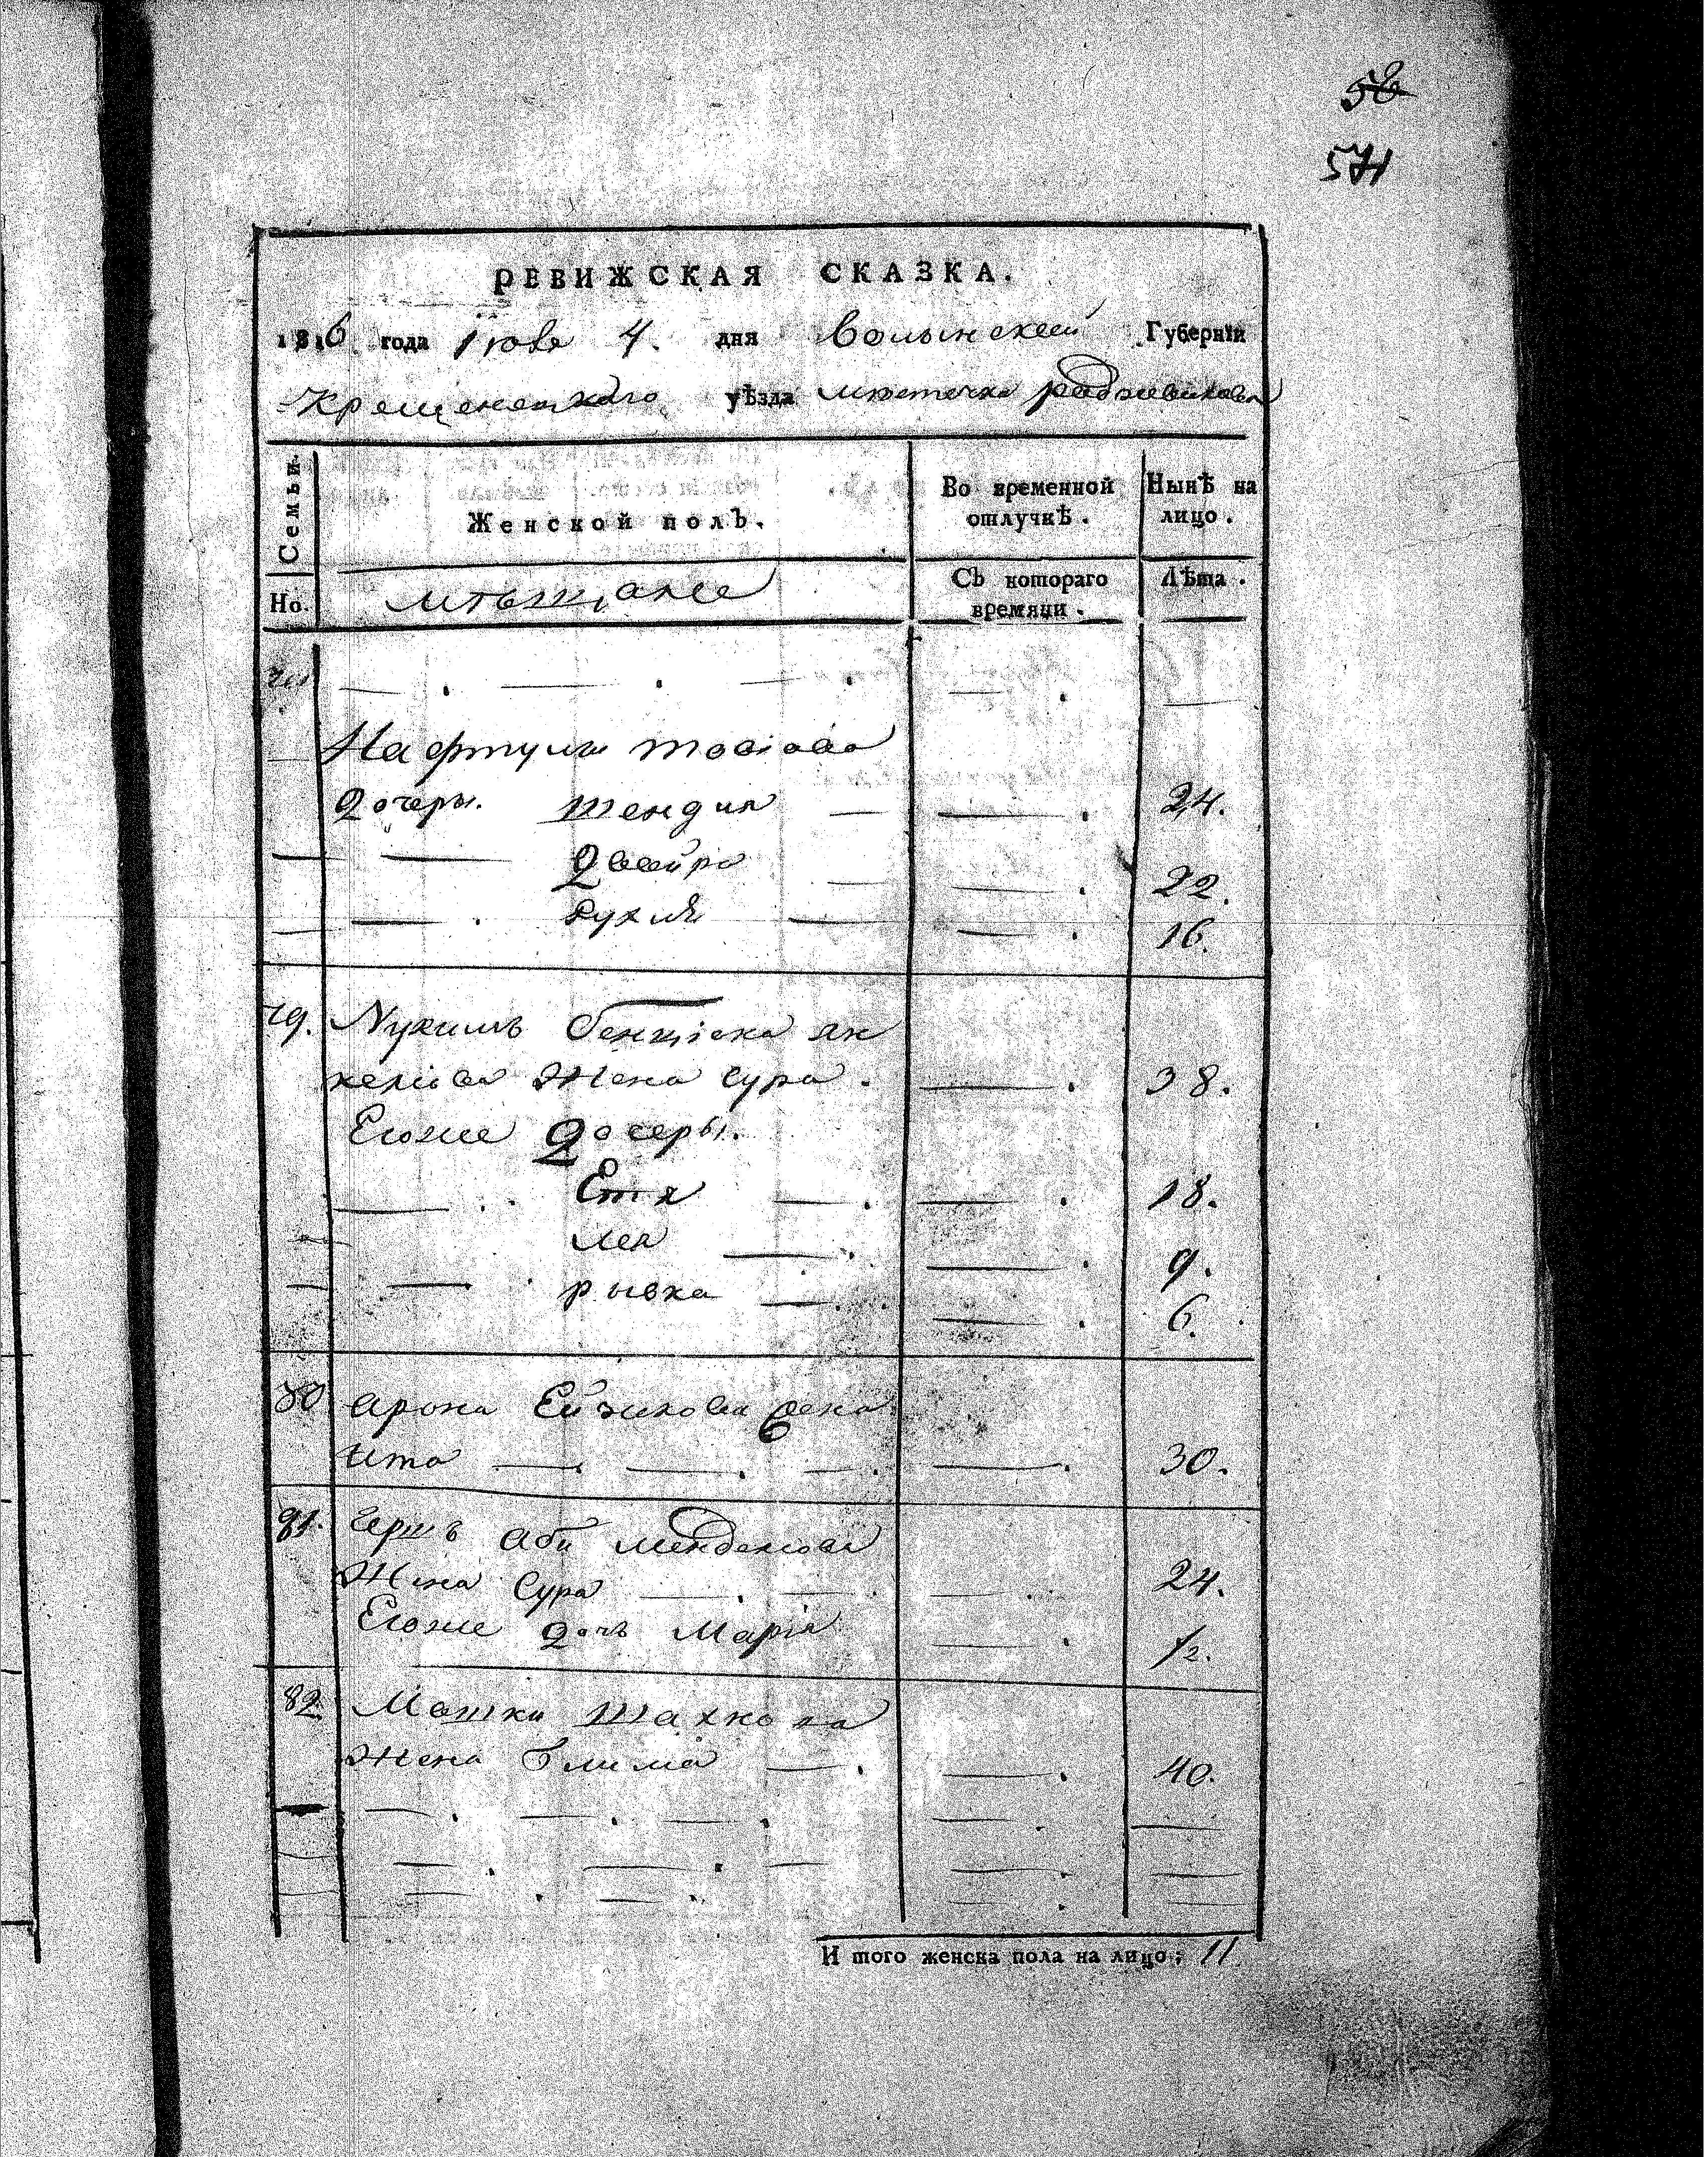 571
РЕВИЖСКАЯ СКАЗКА.
1816 года Июня 4. дня Волынской Губернїи
Кременецкаго уѣзда мѣстечка радзивилова
Семьи.
Женской полъ.
Во временной
отлучкѣ.
Нынѣ на
лицо.
Но.
мѣщане
Съ котораго
времяни.
Лѣта.
Нафтули товіова
дочеры. Шендля 24.
двойра 22.
рухля 16.
79. Нухимъ бенціона ян
келіова Жена Сура. 38.
Егоже дочеры.
Етя 18.
лея 9.
рывка 6.
80 арона Ейзикова жена
ита 30.
81. герша аби мендельова
Жена Сура 24.
Егоже дочь Марія 1/2.
82 Мошки Шахнова
Жена блима 40.
И того женска пола на лицо: 11